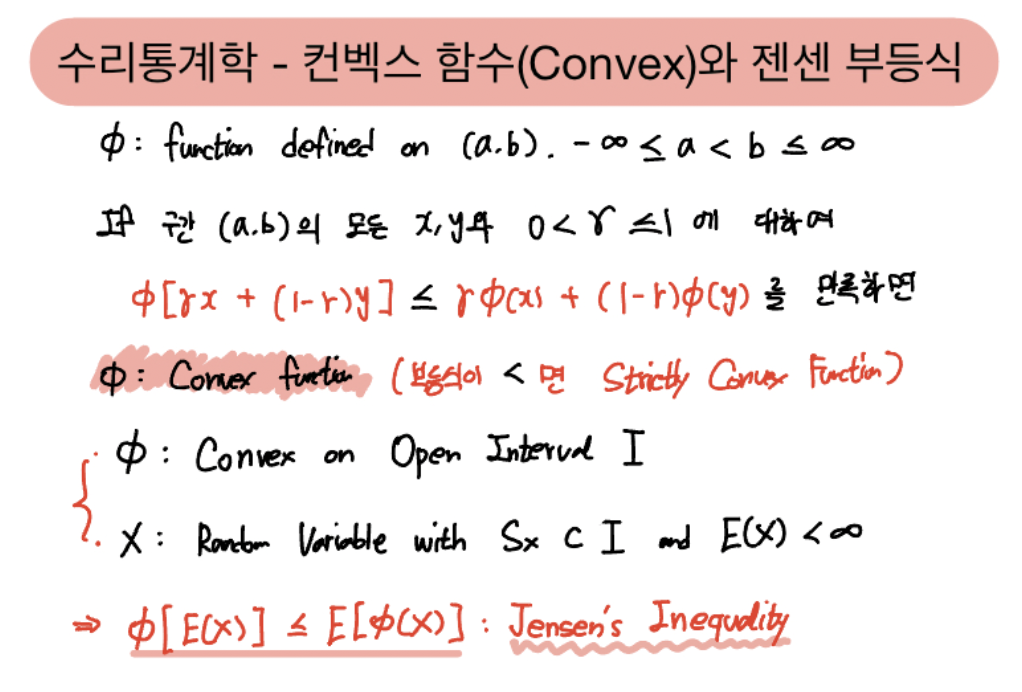 수리통계학 - 컨벡스 함수(Convex)와 젠센 부등식
φ : function defined on (a.b). -∞ ≤ a < b ≤ ∞
If 구간 (a.b)의 모든 x, y와 0 < γ ≤ 1 에 대하여
φ[γx + (1-r)y] ≤ γφ(x) + (1-r)φ(y) 를 만족하면
φ : Convex function (부등식이 < 면 Strictly Convex Function)
φ : Convex on Open Interval I
X : Random Variable with Sx ⊂ I and E(X) < ∞
⇒ φ[E(X)] ≤ E[φ(X)] : Jensen's Inequality